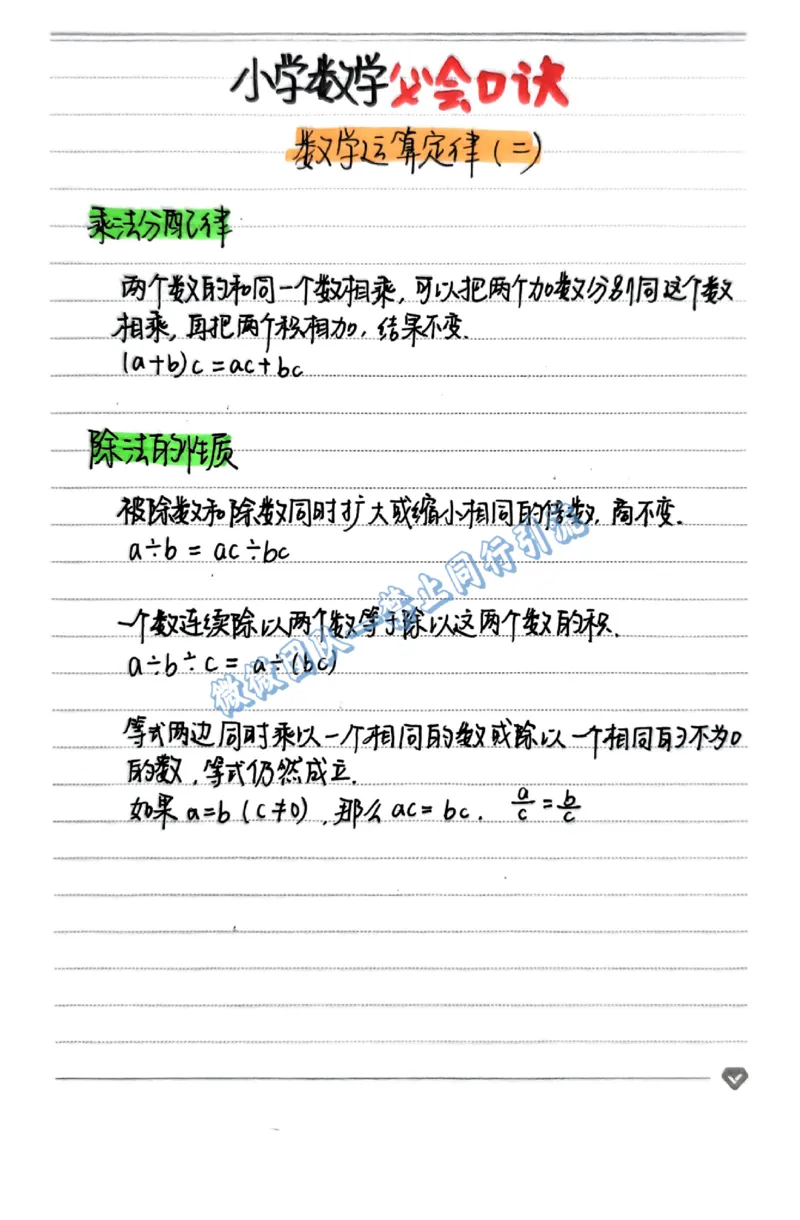 小学数学必会口诀
数学运算定律(二)
乘法分配律
两个数的和同一个数相乘,可以把两个加数分别同这个数
相乘,再把两个积相加,结果不变.
(a+b)c=ac+bc
除法的性质
被除数和除数同时扩大或缩小相同的倍数,商不变.
a÷b = ac÷bc
一个数连续除以两个数等于除以这两个数的积.
a÷b÷c = a÷(bc)
等式两边同时乘以一个相同的数或除以一个相同的不为0
的数,等式仍然成立.
如果 a=b (c≠0),那么 ac= bc. a/c = b/c